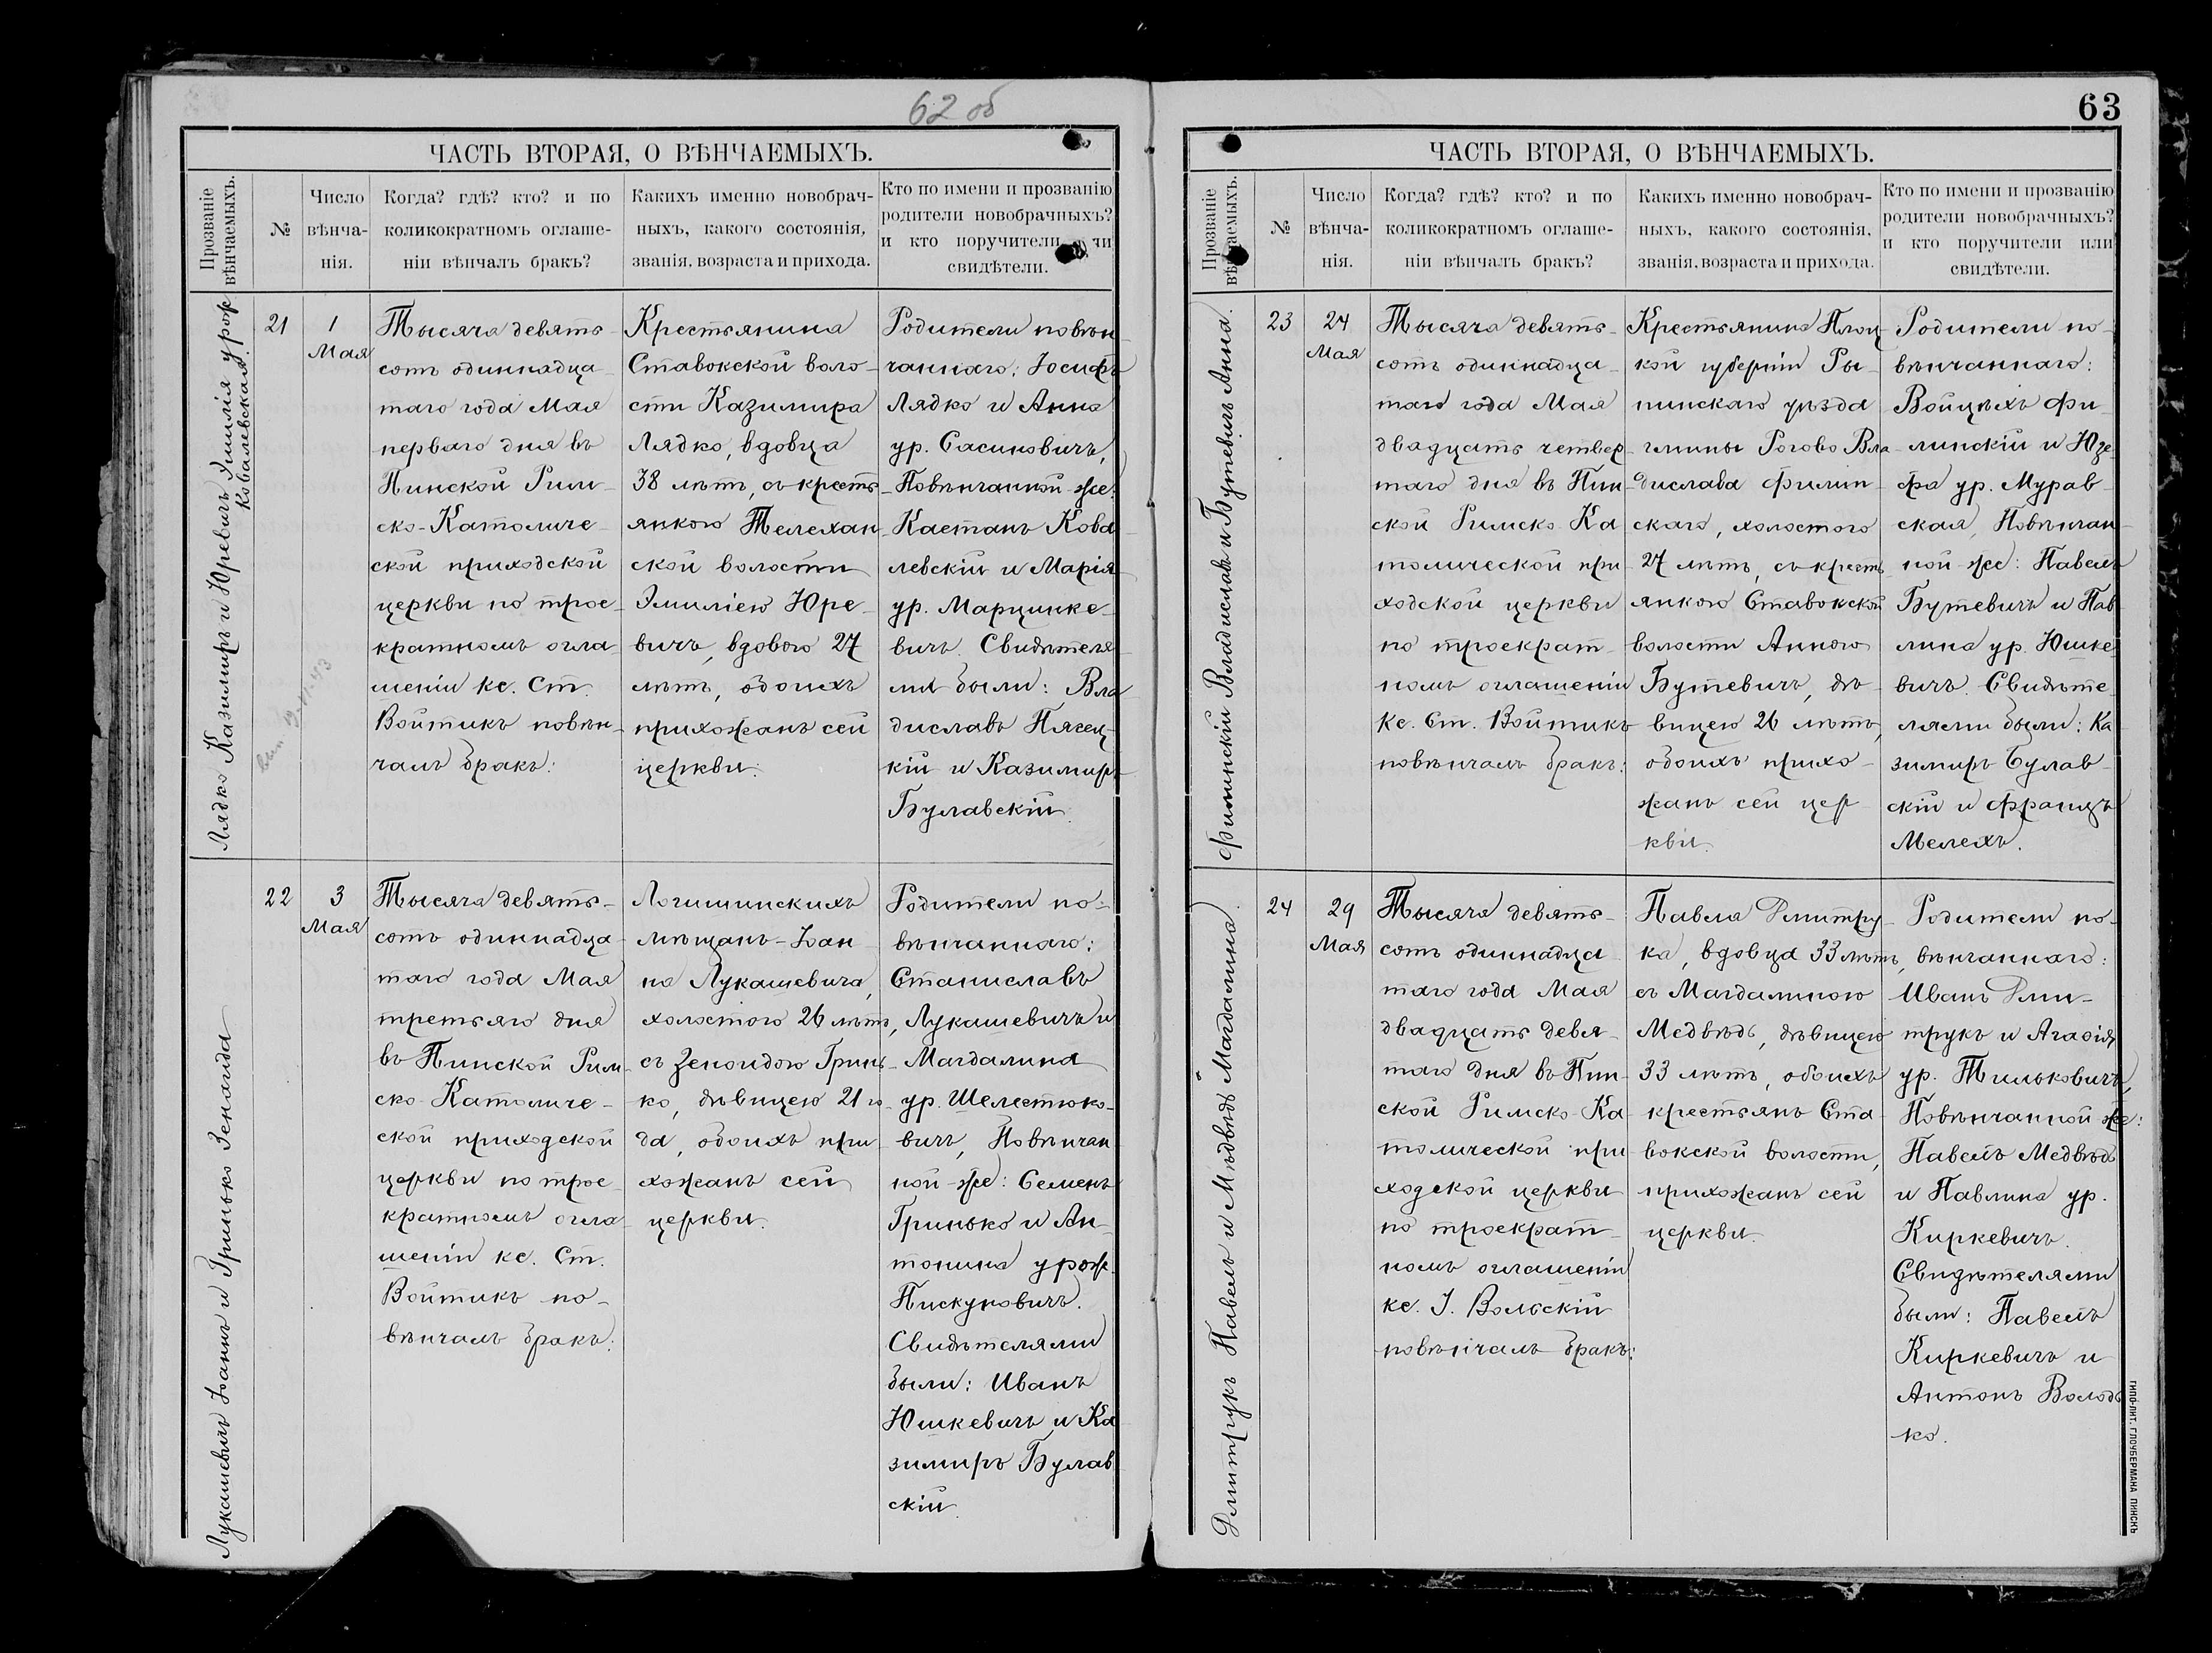 62 об
ЧАСТЬ ВТОРАЯ, О ВѢНЧАЕМЫХЪ.
Прозваніе
вѣнчаемыхъ.
№
Число
вѣнча-
нія.
Когда? гдѣ? кто? и по
коликократномъ оглаше-
ніи вѣнчалъ бракъ?
Какихъ именно новобрач-
ныхъ, какого состоянія,
званія, возраста и прихода.
Кто по имени и прозванію
родители новобрачныхъ?
и кто поручители или
свидѣтели.
Лядко Казимиръ и Юревичъ Эмилія урож
Ковалевская.
21
1
Мая
Тысяча девять-
сотъ одиннадца-
таго года Мая
перваго дня въ
Пинской Рим-
ско-Католиче-
ской приходской
церкви по трое-
кратномъ огла
шеніи кс. Ст.
Войтикъ повѣн-
чалъ бракъ:
Крестьянина
Ставокской воло-
сти Казимира
Лядко, вдовца
38 лѣтъ, съ кресть-
янкою Телехан-
ской волости
Эмиліею Юре-
вичъ, вдовою 27
лѣтъ, обоихъ
прихожанъ сей
церкви:
Родители повѣн-
чаннаго: Іосифъ
Лядко и Анна
ур. Сасиновичъ,
Повѣнчанной-же:
Каетанъ Кова
левскій и Марія
ур. Марцинке-
вичъ. Свидѣтеля-
ми были: Вла
диславъ Пясец-
кій и Казимиръ
Булавскій.
Лукашевичъ Іоаннъ и Гринько Зенаида
22
3
Мая
Тысяча девять-
сотъ одиннадца-
таго года Мая
третьяго дня
въ Пинской Рим-
ско-Католиче-
ской приходской
церкви по трое-
кратномъ огла
шеніи кс. Ст.
Войтикъ по-
вѣнчалъ бракъ:
Логишинскихъ
мѣщанъ-Іоан-
на Лукашевича,
холостого 26 лѣтъ,
съ Зенаидою Гринь-
ко, дѣвицею 21 го-
да, обоихъ при
хожанъ сей
церкви.
Родители по-
вѣнчаннаго:
Станиславъ
Лукашевичъ и
Магдалина
ур. Шелестюко-
вичъ, Повѣнчан
ной-же: Семенъ
Гринько и Ан-
тонина урож.
Пискуновичъ.
Свидѣтелями
были: Иванъ
Юшкевичъ и Ка
зимиръ Булав
скій.
63
ЧАСТЬ ВТОРАЯ, О ВѢНЧАЕМЫХЪ.
Прозваніе
вѣнчаемыхъ.
№
Число
вѣнча-
нія.
Когда? гдѣ? кто? и по
коликократномъ оглаше-
ніи вѣнчалъ бракъ?
Какихъ именно новобрач-
ныхъ, какого состоянія,
званія, возраста и прихода.
Кто по имени и прозванію
родители новобрачныхъ?
и кто поручители или
свидѣтели.
Филинскій Владиславъ и Бутевичъ Анна.
23
24
Мая
Тысяча девять-
сотъ одиннадца-
таго года Мая
двадцать четвер
таго дня въ Пин-
ской Римско Ка
толической при
ходской церкви
по троекрат-
номъ оглашеніи
Кс. Ст. Войтикъ
повѣнчалъ бракъ:
Крестьянина Плоц-
кой губерніи Ры-
пинскаго уѣзда
гмины Рогово Вла-
дислава Филин-
скаго, холостого
27 лѣтъ, съ кресть
янкою Ставокской
волости Анною
Бутевичъ, дѣ-
вицею 26 лѣтъ,
обоихъ прихо-
жанъ сей цер
кви.
Родители по-
вѣнчаннаго:
Войцѣхъ Фи-
линскій и Юзе
фа ур. Мурав-
ская, Повѣнчан-
ной-же: Павелъ
Бутевичъ и Пав
лина ур. Юшке
вичъ. Свидѣте-
лями были: Ка
зимиръ Булав-
скій и Францъ
Мелехъ.
Дмитрукъ Павелъ и Медвѣдь Магдалина.
24
29
Мая
Тысяча девять-
сотъ одиннадца
таго года Мая
двадцать девя-
таго дня въ Пин-
ской Римско-Ка-
толической при
ходской церкви
по троекрат-
номъ оглашеніи
кс. І. Вольскій
повѣнчалъ бракъ:
Павла Дмитру-
ка, вдовца 33 лѣтъ,
съ Магдалиною
Медвѣдь, дѣвицею
33 лѣтъ, обоихъ
крестьянъ Ста-
вокской волости,
прихожанъ сей
церкви.
Родители по-
вѣнчаннаго:
Иванъ Дми-
трукъ и Агафія
ур. Тильковичъ,
Повѣнчанной-же:
Павелъ Медвѣдь
и Павлина ур.
Киркевичъ.
Свидѣтелями
были: Павелъ
Киркевичъ и
Антонъ Володь
ко.
ТИПО-ЛИТ. ГЛОУБЕРМАНА ПИНСКЪ